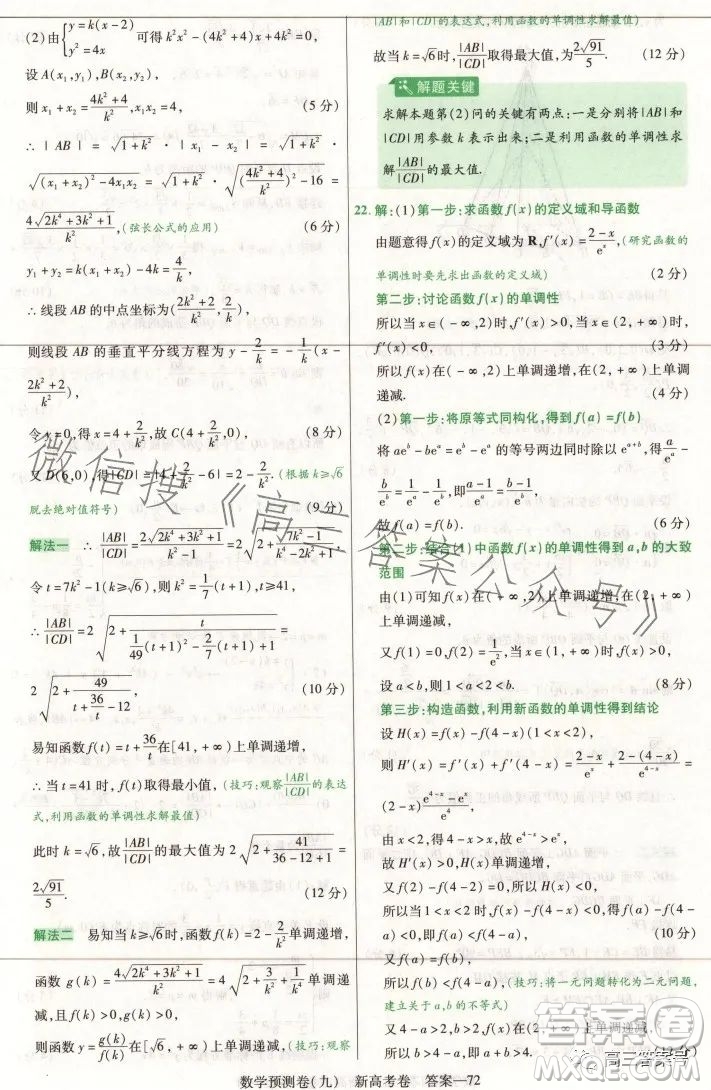 (2)由{y=k(x-2) y²=4x 可得k²x²-(4k²+4)x+4k²=0,
设A(x₁,y₁),B(x₂,y₂),
则x₁+x₂=(4k²+4)/k²,x₁x₂=4, (5分)
∴|AB|=√(1+k²)·
√((x₁+x₂)²-4x₁x₂)=√(1+k²)·√(((4k²+4)/k²)²-16)=
4√(2k⁴+3k²+1)/k²,(弦长公式的应用) (6分)
y₁+y₂=k(x₁+x₂)-4k=4/k,
∴线段AB的中点坐标为((2k²+2)/k²,2/k),
则线段AB的垂直平分线方程为y-2/k=-1/k(x-
(2k²+2)/k²),
令y=0,得x=4+2/k²,故C(4+2/k²,0), (8分)
又D(6,0),得|CD|=|4+2/k²-6|=2-2/k².(根据k≥√6
脱去绝对值符号) (9分)
解法一 ∴|AB|/|CD|=2√(2k⁴+3k²+1)/(k²-1)=2√(2+(7k²-1)/(k⁴-2k²+1)),
令t=7k²-1(k≥√6),则k²=1/7(t+1),t≥41,
∴|AB|/|CD|=2√(2+t/(1/49(t+1)²-2/7(t+1)+1))=
2√(2+49/(t+36/t-12)), (10分)
易知函数f(t)=t+36/t在[41,+∞)上单调递增,
∴当t=41时,f(t)取得最小值,(技巧:观察|AB|/|CD|的表达
式,利用函数的单调性求解最值)
此时k=√6,故|AB|/|CD|的最大值为2√(2+41/(36-12+1))=
2√91/5. (12分)
解法二 易知当k≥√6时,函数f(k)=2-2/k²单调递增,
函数g(k)=4√(2k⁴+3k²+1)/k²=4√(2+3/k²+1/k⁴)单调递
减,且f(k)>0,g(k)>0,
则函数y=g(k)/f(k)在[√6,+∞)上单调递减,(技巧:观察
|AB|和|CD|的表达式,利用函数的单调性求解最值)
故当k=√6时,|AB|/|CD|取得最大值,为2√91/5. (12分)
解题关键
求解本题第(2)问的关键有两点:一是分别将|AB|和
|CD|用参数k表示出来;二是利用函数的单调性求
解|AB|/|CD|的最大值.
22.解:(1)第一步:求函数f(x)的定义域和导函数
由题意得f(x)的定义域为R,f′(x)=(2-x)/eˣ,(研究函数的
单调性时要先求出函数的定义域) (2分)
第二步:讨论函数f(x)的单调性
所以当x∈(-∞,2)时,f′(x)>0,当x∈(2,+∞)时,
f′(x)<0, (3分)
所以f(x)在(-∞,2)上单调递增,在(2,+∞)上单调
递减. (4分)
(2)第一步:将原等式同构化,得到f(a)=f(b)
将aeᵇ-beᵃ=eᵇ-eᵃ的等号两边同时除以eᵃ⁺ᵇ,得a/eᵃ-
b/eᵇ=1/eᵃ-1/eᵇ,即(a-1)/eᵃ=(b-1)/eᵇ,
故f(a)=f(b). (6分)
第二步:结合(1)中函数f(x)的单调性得到a,b的大致
范围
由(1)可知f(x)在(-∞,2)上单调递增,在(2,+∞)上
单调递减,
又f(1)=0,f(2)=1/e²,且当x>1时,f(x)>0,
设a<b,则1<a<2,b>2. (8分)
第三步:构造函数,利用新函数的单调性得到结论
设H(x)=f(x)-f(4-x)(1<x<2),
则H′(x)=f′(x)+f′(4-x)=(2-x)/eˣ+(2-(4-x))/e⁴⁻ˣ=
(2-x)(e⁴⁻ˣ-eˣ)/e⁴,
由x<2,得4-x>2,故e⁴⁻ˣ>eˣ,
故H′(x)>0,H(x)单调递增,
又f(2)-f(4-2)=0,所以H(x)<0,
所以当1<x<2时,f(x)<f(4-x), (10分)
故f(a)<f(4-a),
又f(a)=f(b),
所以f(b)<f(4-a),(技巧:将一元问题转化为二元问题,
建立关于a,b的不等式)
又4-a>2,b>2,f(x)在(2,+∞)上单调递减,
数学预测卷(九) 新高考卷 答案—72
微信搜《高三答案公众号》
答案圈
高三答案号